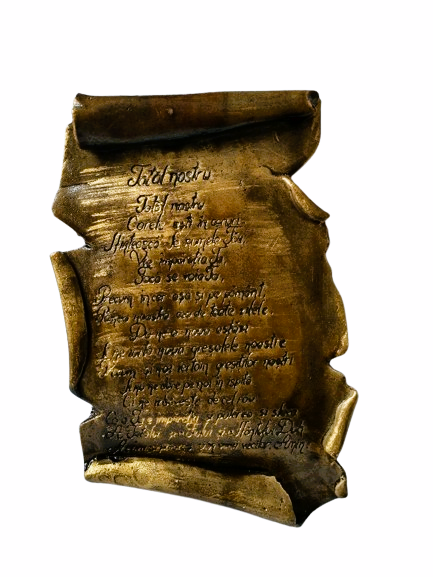 Tatăl nostru
Tatăl nostru
Carele ești în ceruri
Sfințească-Se numele Tău,
Vie împărăția Ta,
Facă-se voia Ta,
Precum în cer așa și pe pământ.
Pâinea noastră cea de toate zilele
Dă-ne-o nouă astăzi
Și ne iartă nouă greșalele noastre
Precum și noi iertăm greșiților noștri
Și nu ne duce pe noi în ispită
Ci ne izbăvește de cel rău
Că a Ta puterea și
Amin